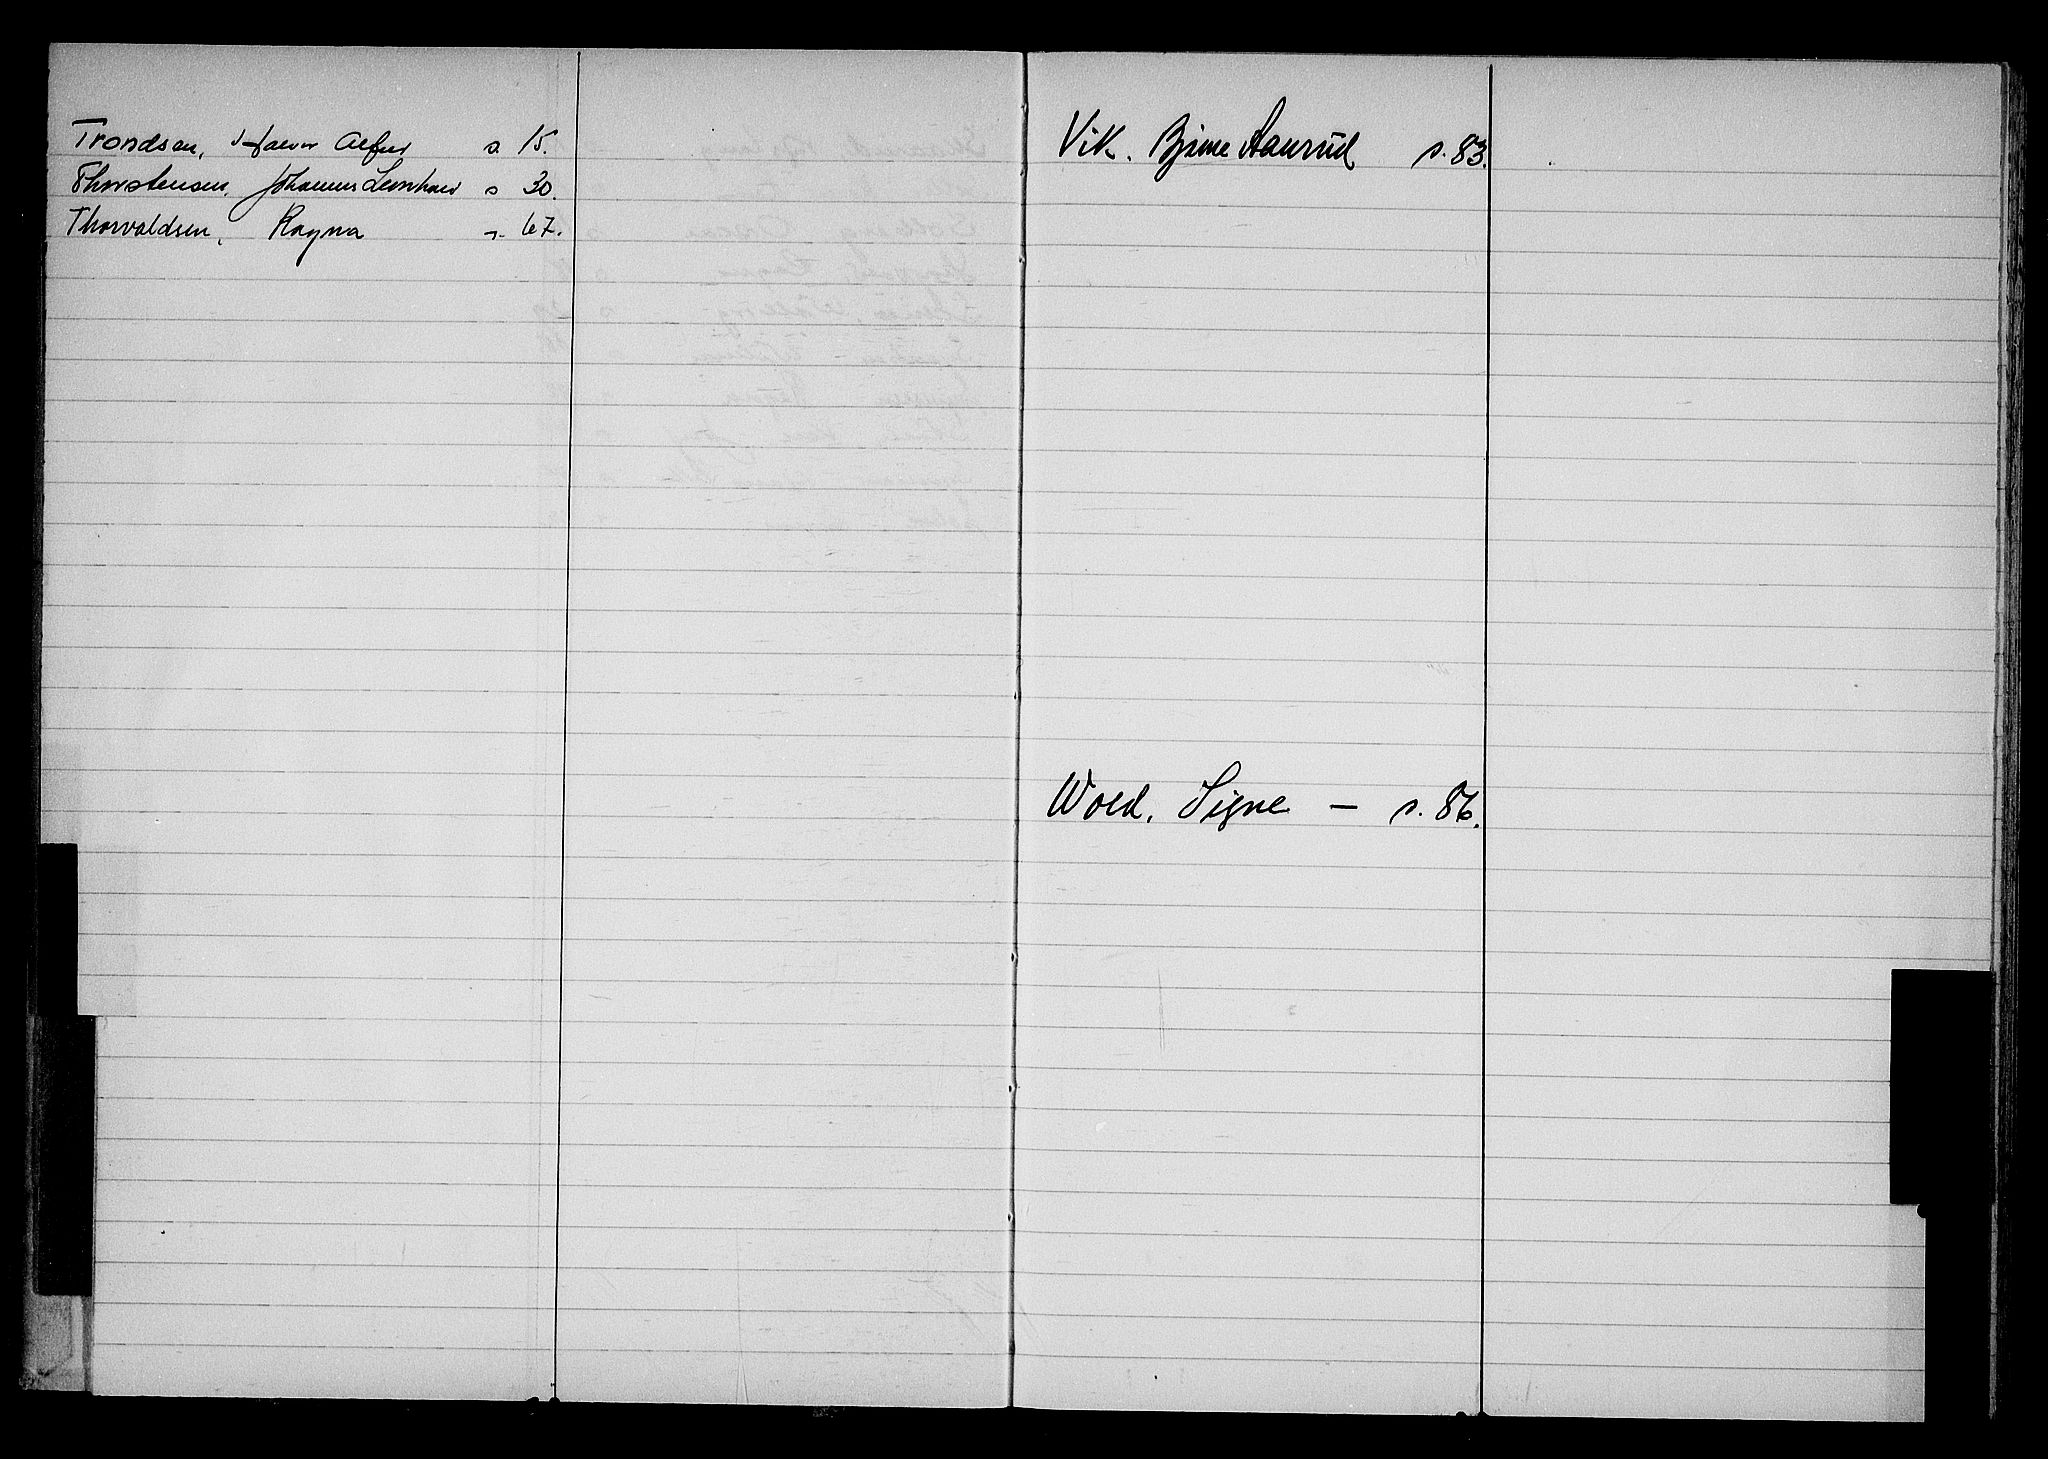 Trondsen, Halvor Alfred s. 15.
Thorstensen, Johannes Leonhard s 30.
Thorvaldsen, Ragna s. 67.
Vik. Bjarne Aanrud s. 83.
Wold, Signe — s. 86.